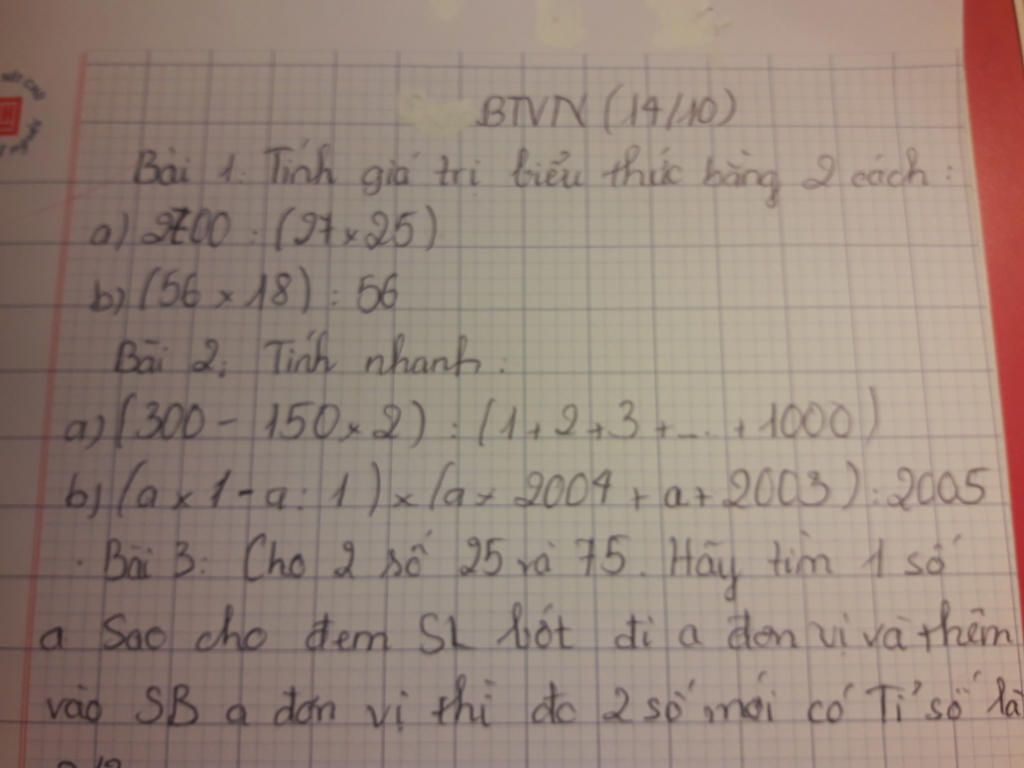 BTVN (14/10)
Bài 1. Tính giá trị biểu thức bằng 2 cách:
a) 2700 : (27 x 25)
b) (56 x 18) : 56
Bài 2: Tính nhanh:
a) (300 - 150 x 2) : (1 + 2 + 3 + ... + 1000)
b) (a x 1 - a : 1) x (a x 2004 + a + 2003) : 2005
Bài 3: Cho 2 số 25 và 75. Hãy tìm 1 số
a sao cho đem SL bớt đi a đơn vị và thêm
vào SB a đơn vị thì đc 2 số mới có Tỉ số là